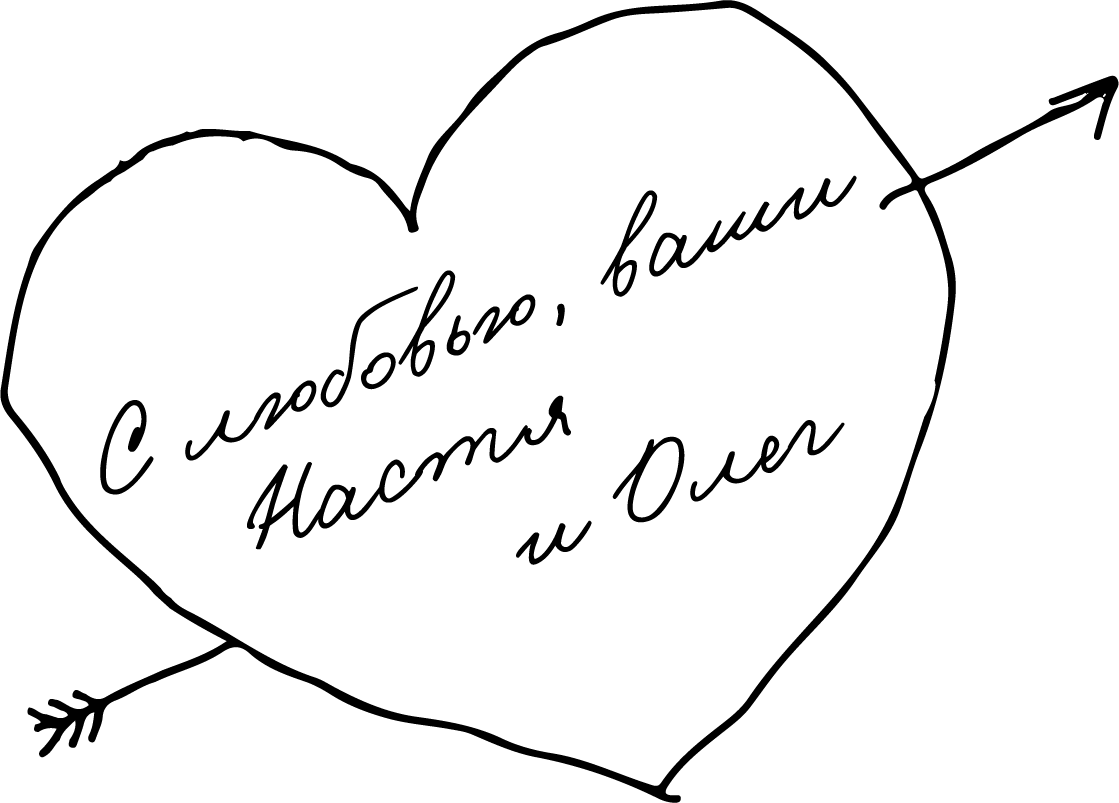 С любовью, ваши
Настя
и Олег